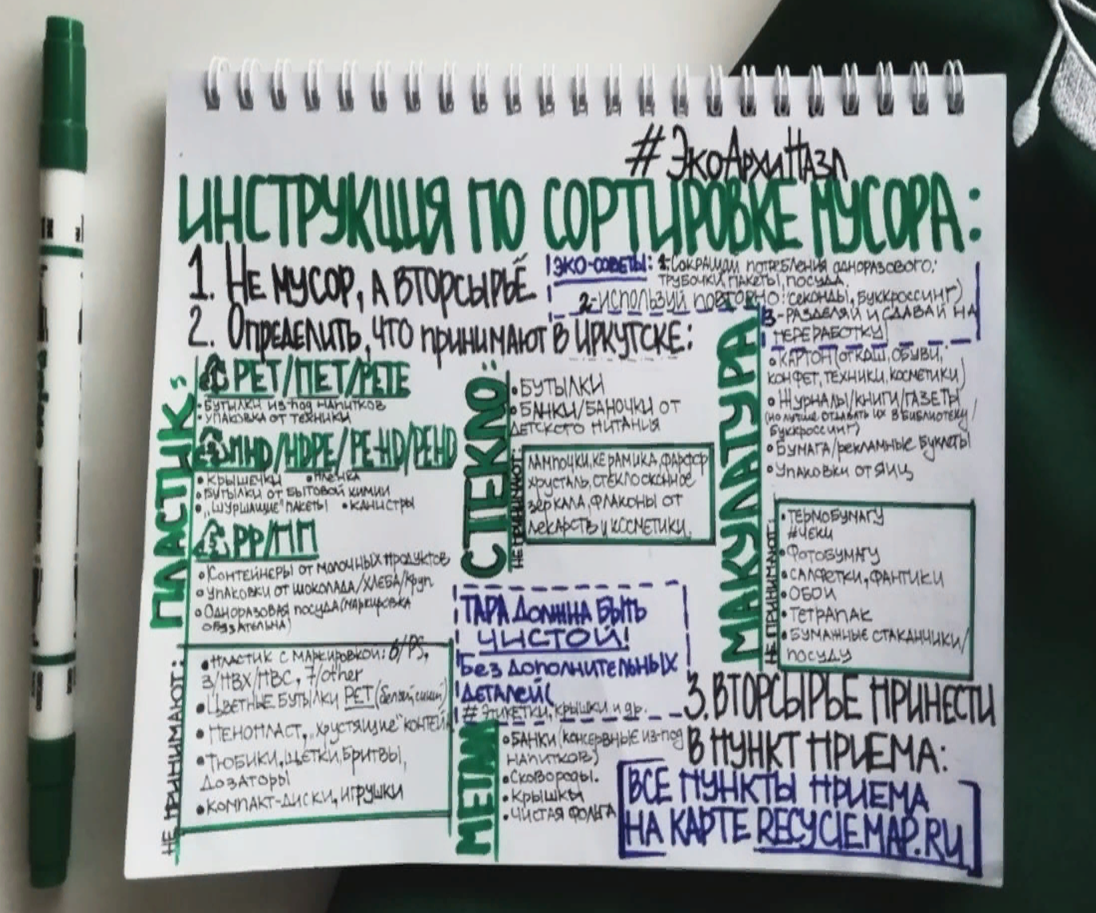 #ЭкоАрхиНазл
ИНСТРУКЦИЯ ПО СОРТИРОВКЕ МУСОРА:
1. НЕ МУСОР, А ВТОРСЫРЬЁ
2. Определить, что принимают в Иркутске:
ЭКО-СОВЕТЫ: 1. Сокращай потребления одноразового:
трубочки, пакеты, посуда.
2-используй повторно: (секонды, буккроссинг)
3.-Разделяй и сдавай на
переработку
ПЛАСТИК:
PET/ПЕТ/PETE
•Бутылки из-под напитков
•Упаковка от техники
ПНD/HDPE/PE-HD/PEHD
•Крышечки •плёнка
•Бутылки от бытовой химии
•„шуршащие" пакеты •канистры
PP/ПП
•Контейнеры от молочных продуктов
•Упаковки от шоколада/хлеба/круп
•Одноразовая посуда(маркировка
обязательна)
НЕ ПРИНИМАЮТ:
•Пластик с маркировкой: 6/PS,
3/НВХ/НВС, 7/other
•Цветные бутылки PET
•Пенопласт, „хрустящие"
•Тюбики, щетки, бритвы,
дозаторы
•компакт-диски, игрушки
СТЕКЛО:
•БУТЫЛКИ
•БАНКИ/БАНОЧКИ ОТ
ДЕТСКОГО ПИТАНИЯ
НЕ ПРИНИМАЮТ:
Лампочки, керамика, фарфор
хрусталь, стекло оконное
зеркала, флаконы от
лекарств и косметики.
ТАРА ДОЛЖНА БЫТЬ
ЧИСТОЙ!
Без дополнительных
деталей(
#этикетки, крышки и др.
МЕТАЛЛ
•Банки (консервные из-под
напитков)
•Сковороды.
•Крышки
•Чистая фольга
МАКУЛАТУРА
•Картон(от каш, обуви,
конфет, техники, косметики)
•Журналы/книги/газеты
(но лучше отдавать их в библиотеку/
буккроссинг)
•Бумага/рекламные буклеты
•Упаковки от яиц
НЕ ПРИНИМАЮТ:
•Термобумагу
#чеки
•Фотобумагу
•Салфетки, фантики
•Обои
•Тетрапак
•Бумажные стаканчики/
посуду
3. ВТОРСЫРЬЕ ПРИНЕСТИ
В ПУНКТ ПРИЕМА:
ВСЕ ПУНКТЫ ПРИЕМА
НА КАРТЕ RECYCLEMAP.RU